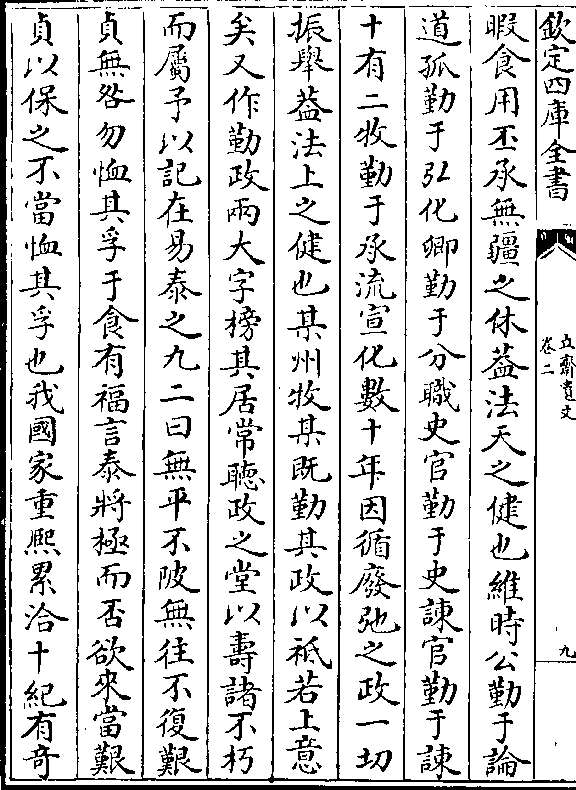 欽定四庫全書
立齋遺文
卷二
九
暇食用丕承無疆之休葢法天之健也維時公勤于論
道孤勤于弘化卿勤于分職史官勤于史諫官勤于諫
十有二牧勤于承流宣化數十年因循廢弛之政一切
振舉葢法上之健也某州牧某既勤其政以祗若上意
矣又作勤政兩大字榜其居常聽政之堂以壽諸不朽
而屬予以記在易泰之九二曰無平不陂無往不復艱
貞無咎勿恤其孚于食有福言泰將極而否欲來當艱
貞以保之不當恤其孚也我國家重熙累洽十紀有奇